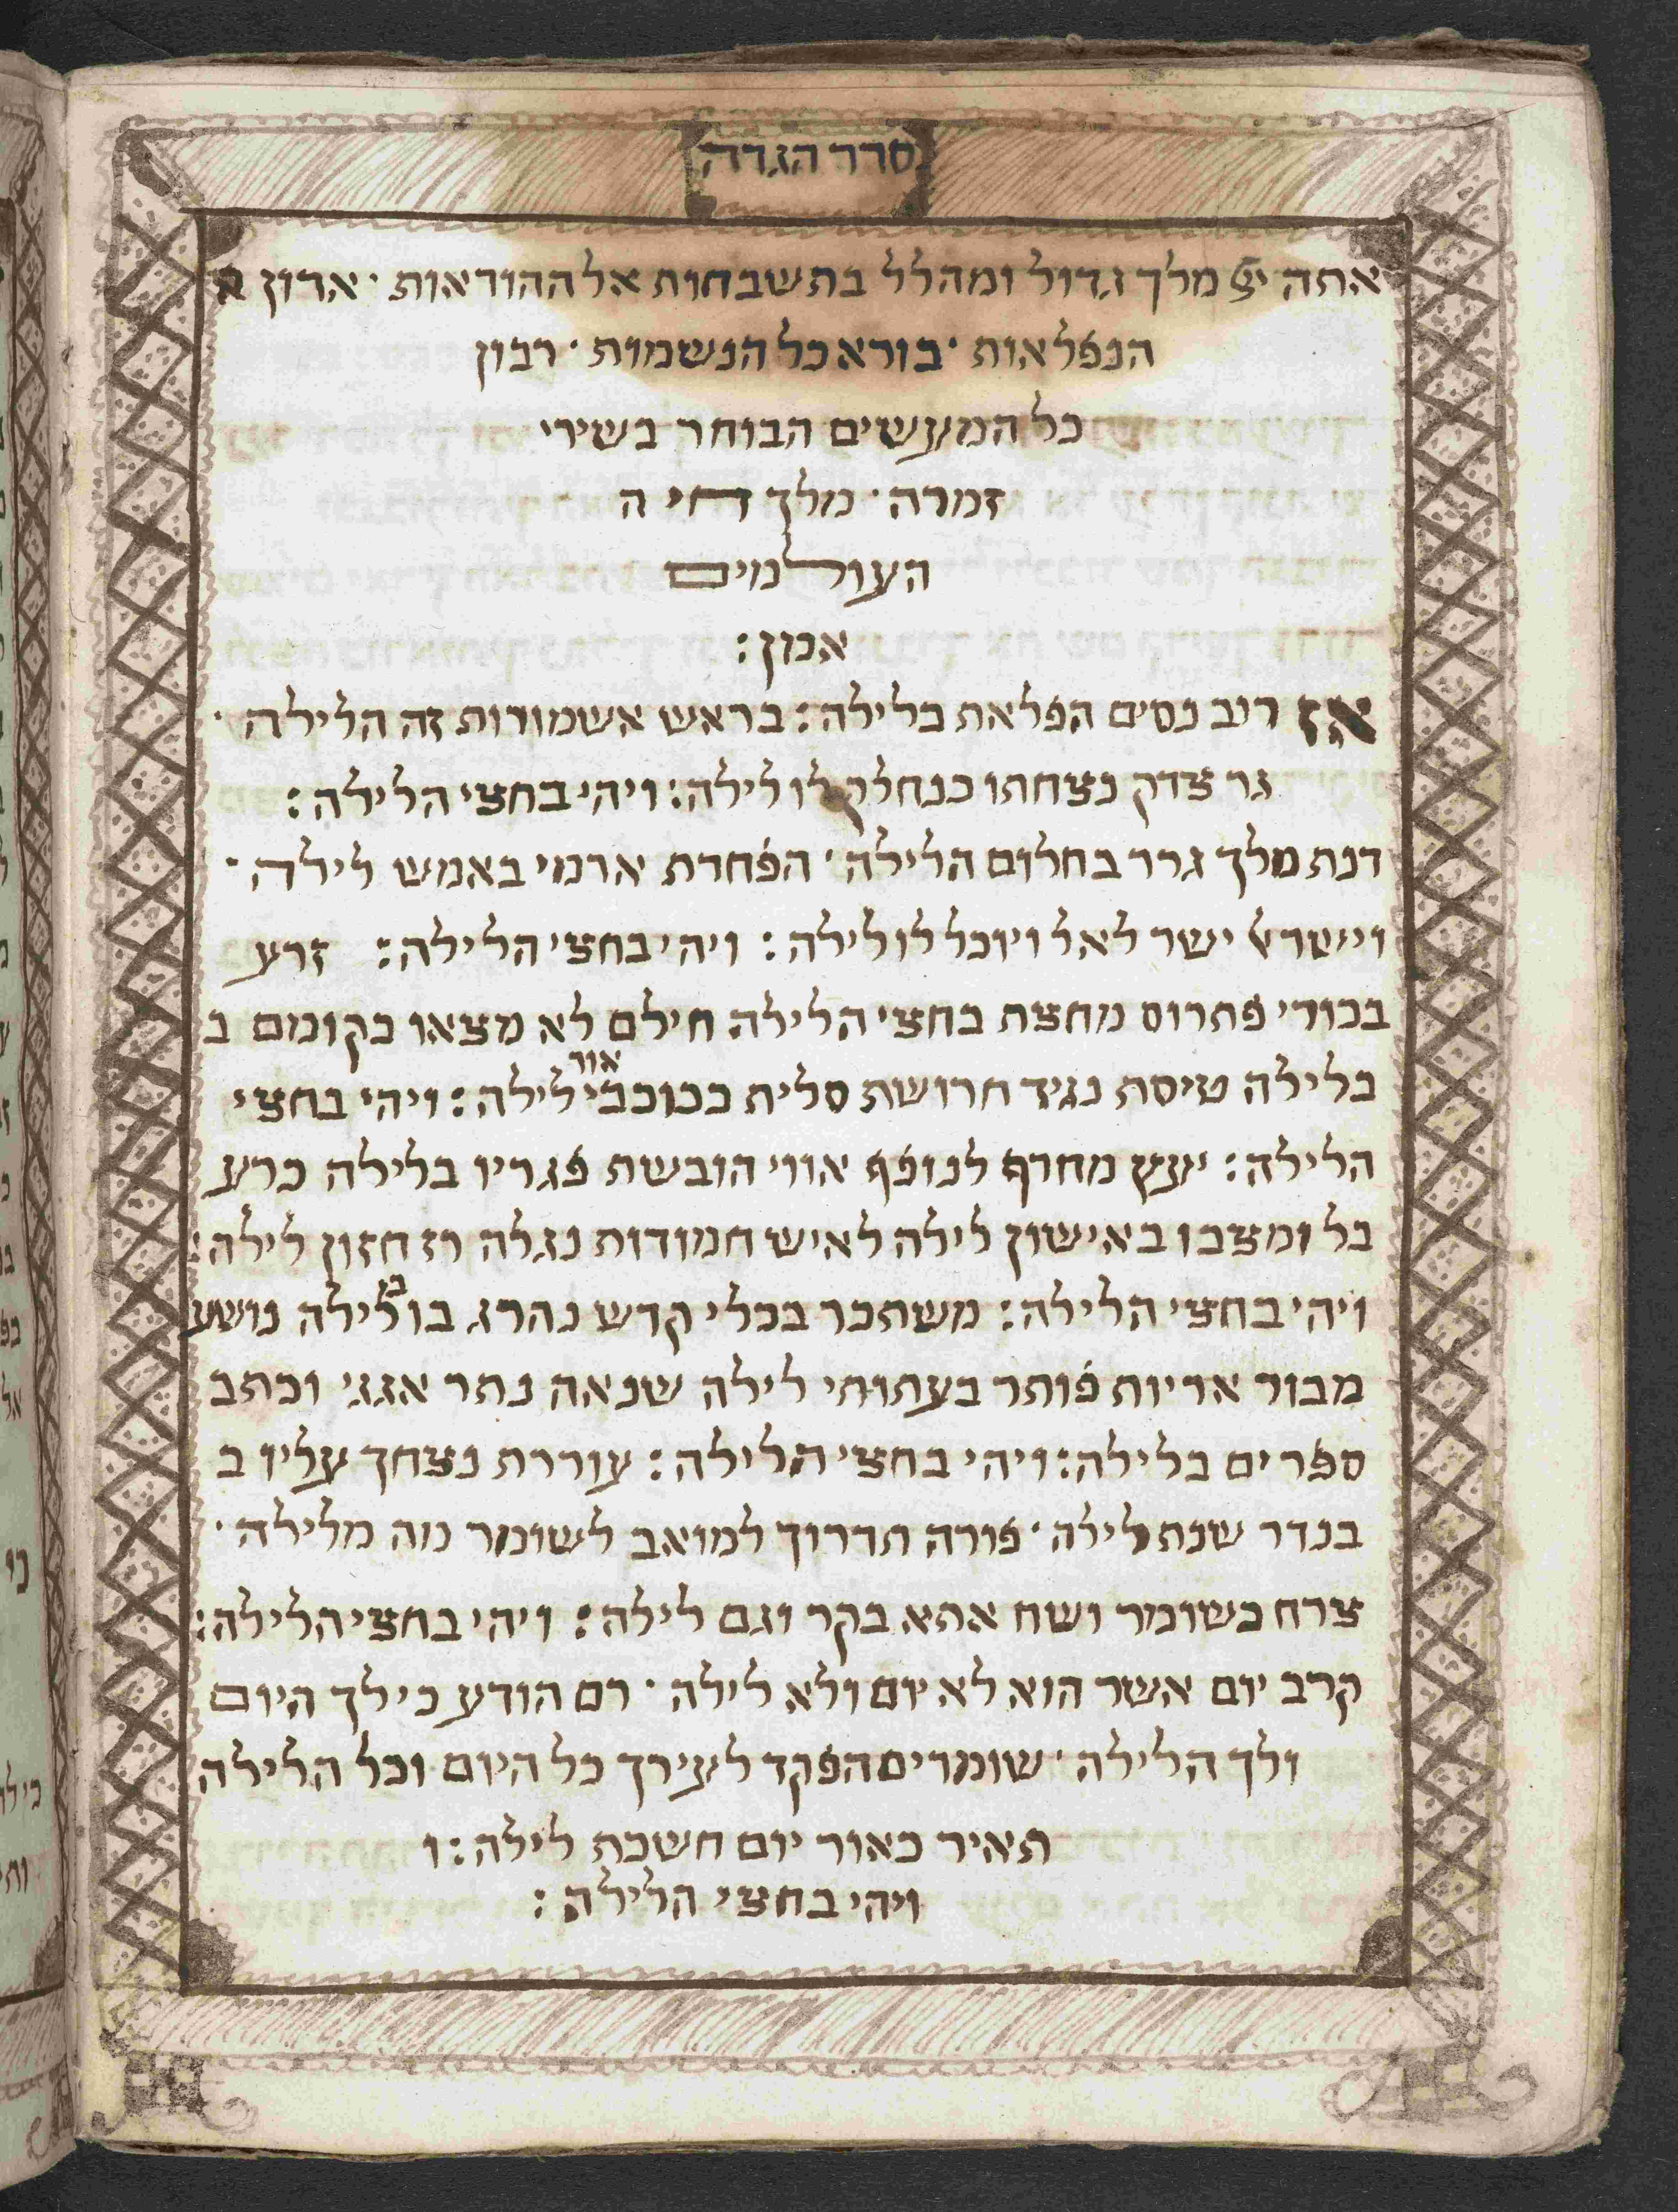 סדר הגדה
אתה יי מלך גדול ומהלל בתשבחות אל ההודאות · אדון ה
הנפלאות · בורא כל הנשמות · רבון
כל המעשים הבוחר בשירי
זמרה · מלך חי ה
העולמים
אמן :
אז רוב נסים הפלאת בלילה : בראש אשמורות זה הלילה ·
גר צדק נצחתו כנחלק לו לילה : ויהי בחצי הלילה :
דנת מלך גרר בחלום הלילה · הפחדת ארמי באמש לילה ·
וישראל ישר לאל ויוכל לו לילה : ויהי בחצי הלילה : זרע
בכורי פתרוס מחצת בחצי הלילה חילם לא מצאו בקומם ב
בלילה טיסת נגיד חרושת סלית בכוכבי אור לילה : ויהי בחצי
הלילה : יעץ מחרף לנופף אווי הובשת פגריו בלילה כרע
בל ומצבו באישון לילה לאיש חמודות נגלה רז חזון לילה :
ויהי בחצי הלילה : משתכר בכלי קדש נהרג בו בלילה נושע
מבור אריות פותר בעתותי לילה שנאה נתר אגגי וכתב
ספרים בלילה : ויהי בחצי הלילה : עוררת נצחך עליו ב
בנדר שנת לילה · פורה תדרוך למואב לשומר מה מלילה ·
צרח כשומר ושח אתא בקר וגם לילה : ויהי בחצי הלילה :
קרב יום אשר הוא לא יום ולא לילה · רם הודע כי לך היום
ולך הלילה · שומרים הפקד לעירך כל היום וכל הלילה
תאיר כאור יום חשכת לילה : ו
ויהי בחצי הלילה :